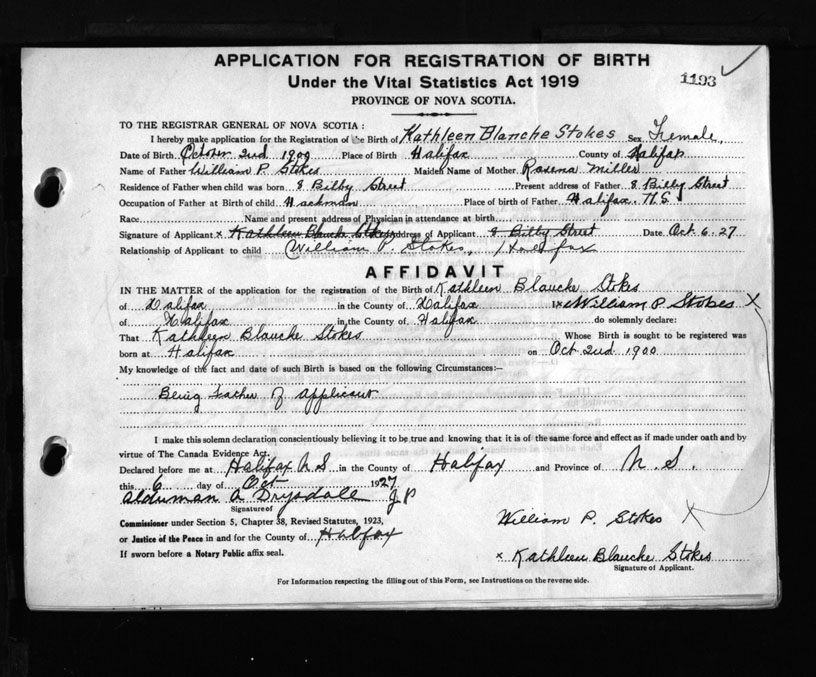 APPLICATION FOR REGISTRATION OF BIRTH
Under the Vital Statistics Act 1919
1193
PROVINCE OF NOVA SCOTIA.
TO THE REGISTRAR GENERAL OF NOVA SCOTIA :
I hereby make application for the Registration of the Birth of Kathleen Blanche Stokes Sex Female
Date of Birth October 2nd 1900 Place of Birth Halifax County of Halifax
Name of Father William P. Stokes Maiden Name of Mother Rosena Miller
Residence of Father when child was born 8 Bilby Street Present address of Father 8 Bilby Street
Occupation of Father at Birth of child Hackman Place of birth of Father Halifax, N.S.
Race Name and present address of Physician in attendance at birth
Signature of Applicant x Kathleen Blanche Stokes Address of Applicant 8 Bilby Street Date Oct 6-27
Relationship of Applicant to child William P. Stokes, Halifax
AFFIDAVIT
IN THE MATTER of the application for the registration of the Birth of Kathleen Blanche Stokes
of Halifax in the County of Halifax I x William P Stokes X
of Halifax in the County of Halifax do solemnly declare:
That Kathleen Blanche Stokes Whose Birth is sought to be registered was
born at Halifax on Oct 2nd 1900
My knowledge of the fact and date of such Birth is based on the following Circumstances:—
Being Father of applicant
I make this solemn declaration conscientiously believing it to be true and knowing that it is of the same force and effect as if made under oath and by
virtue of The Canada Evidence Act.
Declared before me at Halifax N S in the County of Halifax and Province of N. S.
this 6 day of Oct 1927
Alderman A Drysdale J P
Signature of
Commissioner under Section 5, Chapter 38, Revised Statutes, 1923,
William P. Stokes X
or Justice of the Peace in and for the County of Halifax
If sworn before a Notary Public affix seal.
x Kathleen Blanche Stokes
Signature of Applicant.
For Information respecting the filling out of this Form, see Instructions on the reverse side.